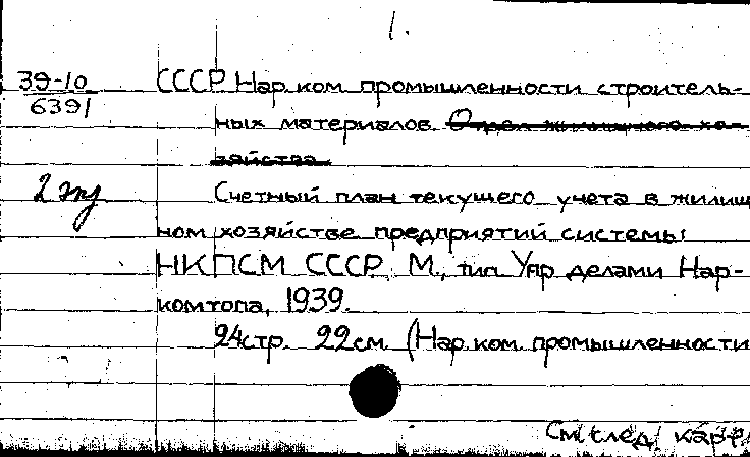 1.
39-10
6391
СССР Нар. ком. промышленности строитель-
ных материалов. Отдел жилищного хо-
зяйства.
2 экз
Счетный план текущего учета в жилищ
ном хозяйстве предприятий системы
НКПСМ СССР. М., тип. Упр. делами Нар-
комтопа, 1939.
24стр. 22см. (Нар. ком. промышленности
См. след. карт.